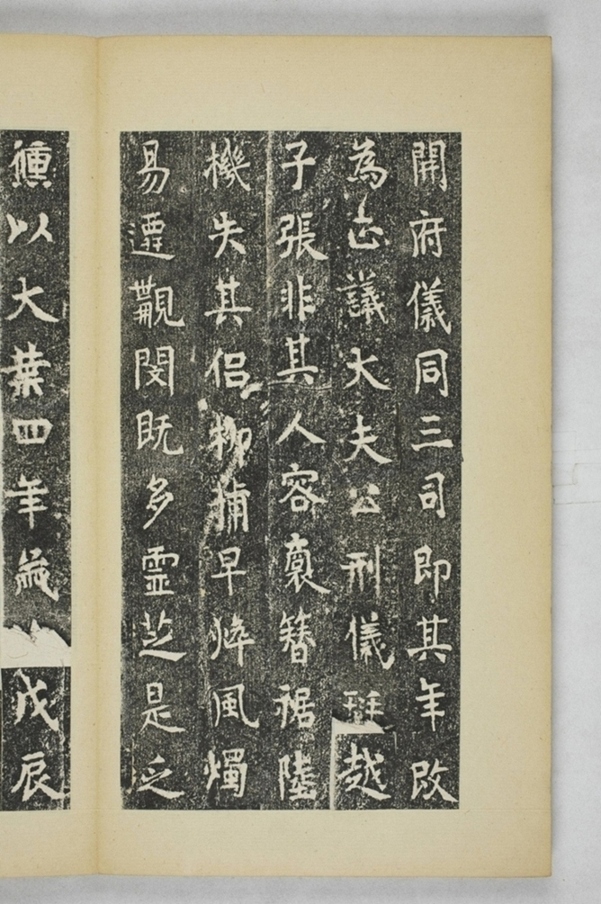 開府儀同三司即其年改
為正議大夫公刑儀越
子張非其人容簪裾陸
機失其侶柳捕早悴風燭
易遷覯閔既多靈芝是乏
以大葉四年歲戊辰